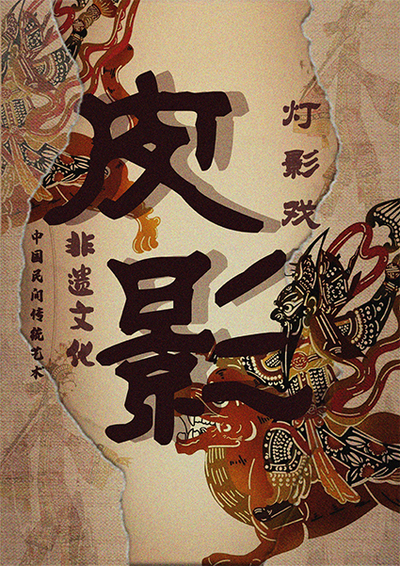 皮影
灯影戏
非遗文化
中国民间传统艺术